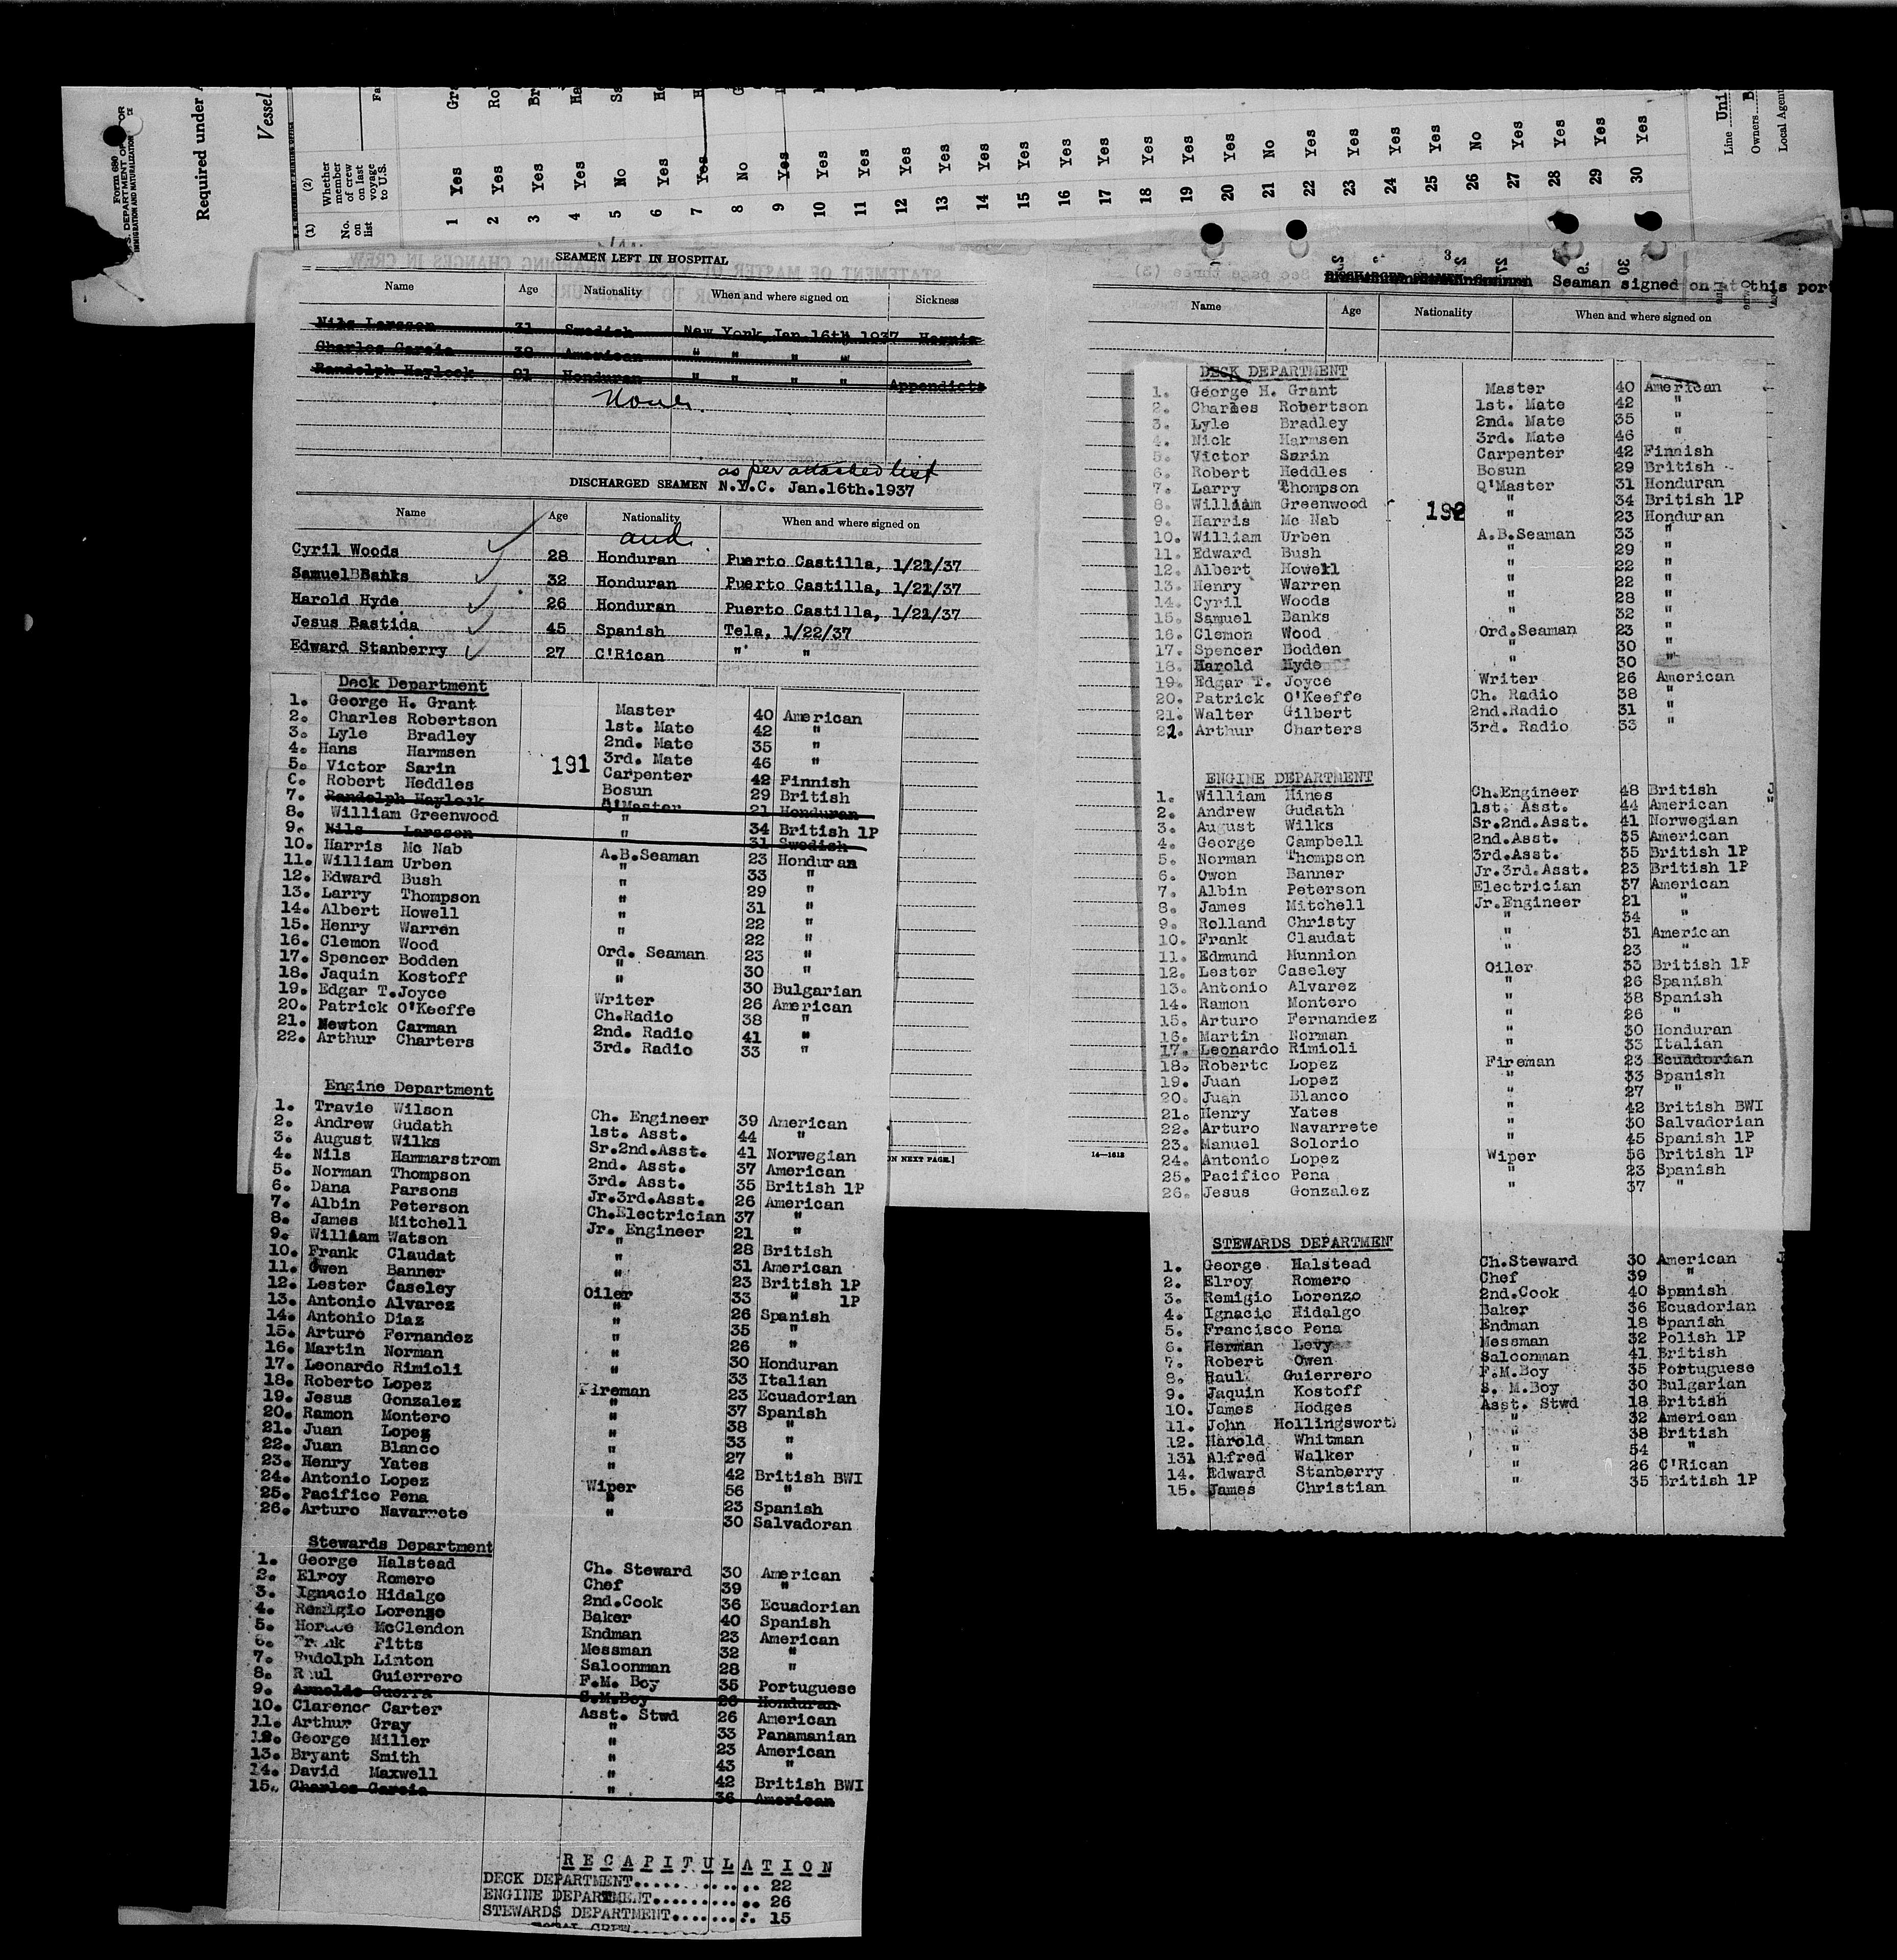 Form 680
U.S. DEPARTMENT OF
IMMIGRATION AND NATURALIZATION
Required under
Vessel
(1)
No. on list
(2)
Whether member of crew on last voyage to U.S.
1 Yes Gra
2 Yes Ro
3 Yes Br
4 Yes Ha
5 No Sa
6 Yes He
7 Yes H
8 No G
9 Yes
10 Yes
11 Yes
12 Yes
13 Yes
14 Yes
15 Yes
16 Yes
17 Yes
18 Yes
19 Yes
20 Yes
21 No
22 Yes
23 Yes
24 Yes
25 Yes
26 No
27 Yes
28 Yes
29 Yes
30 Yes
Line Uni
Owners B
Local Agent
SEAMEN LEFT IN HOSPITAL
Name Age Nationality When and where signed on Sickness
Nils Larsson 31 Swedish New York, Jan.16th 1937 Hernia
Charles Garcia 38 American " " " "
Randolph Haylock 21 Honduran " " " " Appendicts
None.
as per attached list
DISCHARGED SEAMEN N.Y.C. Jan.16th.1937
Name Age Nationality When and where signed on
and
Cyril Woods 28 Honduran Puerto Castilla, 1/21/37
Samuel Banks 32 Honduran Puerto Castilla, 1/21/37
Harold Hyde 26 Honduran Puerto Castilla, 1/21/37
Jesus Bastida 45 Spanish Tela, 1/22/37
Edward Stanberry 27 C'Rican " "
Deck Department
1. George H. Grant Master 40 American
2. Charles Robertson 1st. Mate 42 "
3. Lyle Bradley 2nd. Mate 35 "
4. Hans Harmsen 3rd. Mate 46 "
191
5. Victor Sarin Carpenter 42 Finnish
6. Robert Heddles Bosun 29 British
7. Randolph Haylock Q'Master 21 Honduran
8. William Greenwood " 34 British 1P
9. Nils Larsson " 31 Swedish
10. Harris Mc Nab A.B.Seaman 23 Honduran
11. William Urben " 33 "
12. Edward Bush " 29 "
13. Larry Thompson " 31 "
14. Albert Howell " 22 "
15. Henry Warren " 22 "
16. Clemon Wood Ord. Seaman 23 "
17. Spencer Bodden " 30 "
18. Jaquin Kostoff " 30 Bulgarian
19. Edgar T.Joyce Writer 26 American
20. Patrick O'Keeffe Ch.Radio 38 "
21. Newton Carman 2nd. Radio 41 "
22. Arthur Charters 3rd. Radio 33 "
Engine Department
1. Travie Wilson Ch. Engineer 39 American
2. Andrew Gudath 1st. Asst. 44 "
3. August Wilks Sr.2nd.Asst. 41 Norwegian
4. Nils Hammarstrom 2nd. Asst. 37 American
5. Norman Thompson 3rd. Asst. 35 British 1P
6. Dana Parsons Jr.3rd.Asst. 26 American
7. Albin Peterson Ch.Electrician 37 "
8. James Mitchell Jr. Engineer 21 "
9. William Watson " 28 British
10. Frank Claudat " 31 American
11. Owen Banner " 23 British 1P
12. Lester Caseley Oiler 33 " 1P
13. Antonio Alvarez " 26 Spanish
14. Antonio Diaz " 35 "
15. Arturo Fernandez " 26 "
16. Martin Norman " 30 Honduran
17. Leonardo Rimioli " 33 Italian
18. Roberto Lopez Fireman 23 Ecuadorian
19. Jesus Gonzalez " 37 Spanish
20. Ramon Montero " 38 "
21. Juan Lopez " 33 "
22. Juan Blanco " 27 "
23. Henry Yates " 42 British BWI
24. Antonio Lopez Wiper 56 "
25. Pacifico Pena " 23 Spanish
26. Arturo Navarrete " 30 Salvadoran
Stewards Department
1. George Halstead Ch. Steward 30 American
2. Elroy Romero Chef 39 "
3. Ignacio Hidalgo 2nd.Cook 36 Ecuadorian
4. Remigio Lorenzo Baker 40 Spanish
5. Horace McClendon Endman 23 American
6. Frank Pitts Messman 32 "
7. Rudolph Linton Saloonman 28 "
8. Raul Guierrero F.M. Boy 35 Portuguese
9. Arnoldo Guerra S.M.Boy 26 Honduran
10. Clarence Carter Asst. Stwd 26 American
11. Arthur Gray " 33 Panamanian
12. George Miller " 23 American
13. Bryant Smith " 43 "
14. David Maxwell " 42 British BWI
15. Charles Garcia " 36 American
RECAPITULATION
DECK DEPARTMENT........... 22
ENGINE DEPARTMENT........... 26
STEWARDS DEPARTMENT......... 15
TOTAL CREW
ON NEXT PAGE.]
14—1613
See page three (3)
STATEMENT OF MASTER OF VESSEL REGARDING CHANGES IN CREW
PRIOR TO DEPARTURE
DISCHARGED SEAMEN Seaman signed on at this port
Name Age Nationality When and where signed on
DECK DEPARTMENT
1. George H. Grant Master 40 American
2. Charles Robertson 1st. Mate 42 "
3. Lyle Bradley 2nd. Mate 35 "
4. Nick Harmsen 3rd. Mate 46 "
5. Victor Sarin Carpenter 42 Finnish
6. Robert Heddles Bosun 29 British
7. Larry Thompson Q'Master 31 Honduran
8. William Greenwood " 34 British 1P
192
9. Harris Mc Nab " 23 Honduran
10. William Urben A.B.Seaman 33 "
11. Edward Bush " 29 "
12. Albert Howell " 22 "
13. Henry Warren " 22 "
14. Cyril Woods " 28 "
15. Samuel Banks " 32 "
16. Clemon Wood Ord.Seaman 23 "
17. Spencer Bodden " 30 "
18. Harold Hyde " 30 "
19. Edgar T. Joyce Writer 26 American
20. Patrick O'Keeffe Ch. Radio 38 "
21. Walter Gilbert 2nd.Radio 31 "
22. Arthur Charters 3rd. Radio 33 "
ENGINE DEPARTMENT
1. William Hines Ch.Engineer 48 British
2. Andrew Gudath 1st. Asst. 44 American
3. August Wilks Sr.2nd.Asst. 41 Norwegian
4. George Campbell 2nd.Asst. 35 American
5. Norman Thompson 3rd.Asst. 35 British 1P
6. Owen Banner Jr.3rd.Asst. 23 British 1P
7. Albin Peterson Electrician 37 American
8. James Mitchell Jr.Engineer 21 "
9. Rolland Christy " 34 "
10. Frank Claudat " 31 American
11. Edmund Munnion " 23 "
12. Lester Caseley Oiler 33 British 1P
13. Antonio Alvarez " 26 Spanish
14. Ramon Montero " 38 Spanish
15. Arturo Fernandez " 26 "
16. Martin Norman " 30 Honduran
17. Leonardo Rimioli " 33 Italian
18. Roberto Lopez Fireman 23 Ecuadorian
19. Juan Lopez " 33 Spanish
20. Juan Blanco " 27 "
21. Henry Yates " 42 British BWI
22. Arturo Navarrete " 30 Salvadorian
23. Manuel Solorio " 45 Spanish 1P
24. Antonio Lopez Wiper 56 British 1P
25. Pacifico Pena " 23 Spanish
26. Jesus Gonzalez " 37 "
STEWARDS DEPARTMENT
1. George Halstead Ch.Steward 30 American
2. Elroy Romero Chef 39 "
3. Remigio Lorenzo 2nd.Cook 40 Spanish
4. Ignacio Hidalgo Baker 36 Ecuadorian
5. Francisco Pena Endman 18 Spanish
6. Herman Levy Messman 32 Polish 1P
7. Robert Owen Saloonman 41 British
8. Raul Guierrero F.M.Boy 35 Portuguese
9. Jaquin Kostoff S. M.Boy 30 Bulgarian
10. James Hodges Asst. Stwd 18 British
11. John Hollingsworth " 32 American
12. Harold Whitman " 38 British
131 Alfred Walker " 54 "
14. Edward Stanberry " 26 C'Rican
15. James Christian " 35 British 1P